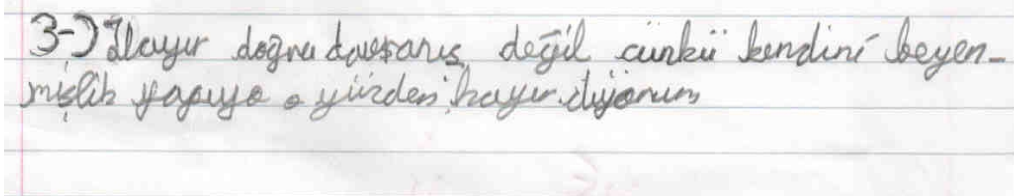 3-) Hayır doğru davranış değil cünkü kendini beyen-
mişlik yapıyo o yüzden hayır diyorum